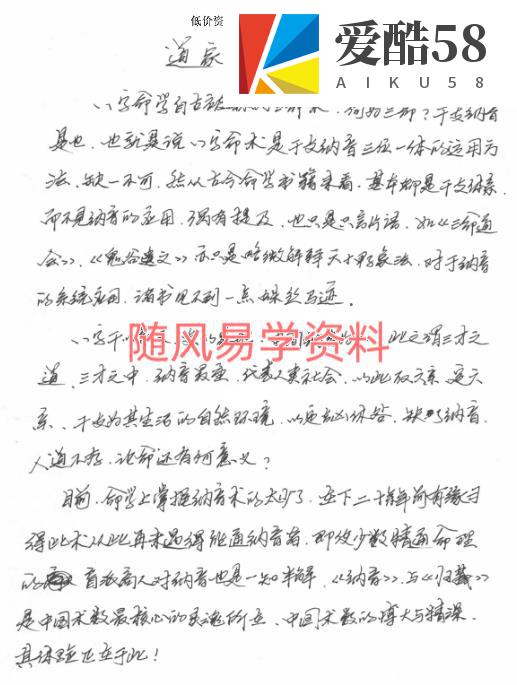 低价资
爱酷58
AIKU58
道家
八字命学自古 何为三命？干支纳音
是也，也就是说八字命术是干支纳音三位一体的运用方
法，缺一不可，然从古今命学书籍来看，基本都是干支体系，
而不见纳音的应用，偶有提及，也只是只言片语，如《三命通
会》、《鬼谷遗文》亦只是略微解释天干形象法，对于纳音
的系统应用，诸书见不到一点蛛丝马迹。
随风易学资料
八字干 此之谓三才之
道，三才之中，纳音最重，代表人类社会，以此
系、干支为其生活的自然环境，以 缺乏纳音，
人道不存，论命还有何意义？
目前，命学上掌握纳音术的太少了，在下二十年前有缘习
得此术从此再未遇得能通纳音者，即使少数精通命理
的 对纳音也是一知半解，《纳音》与《归藏》
是中国术数最核心的灵魂所在，中国术数的博大与精深，
具体 正在于此！